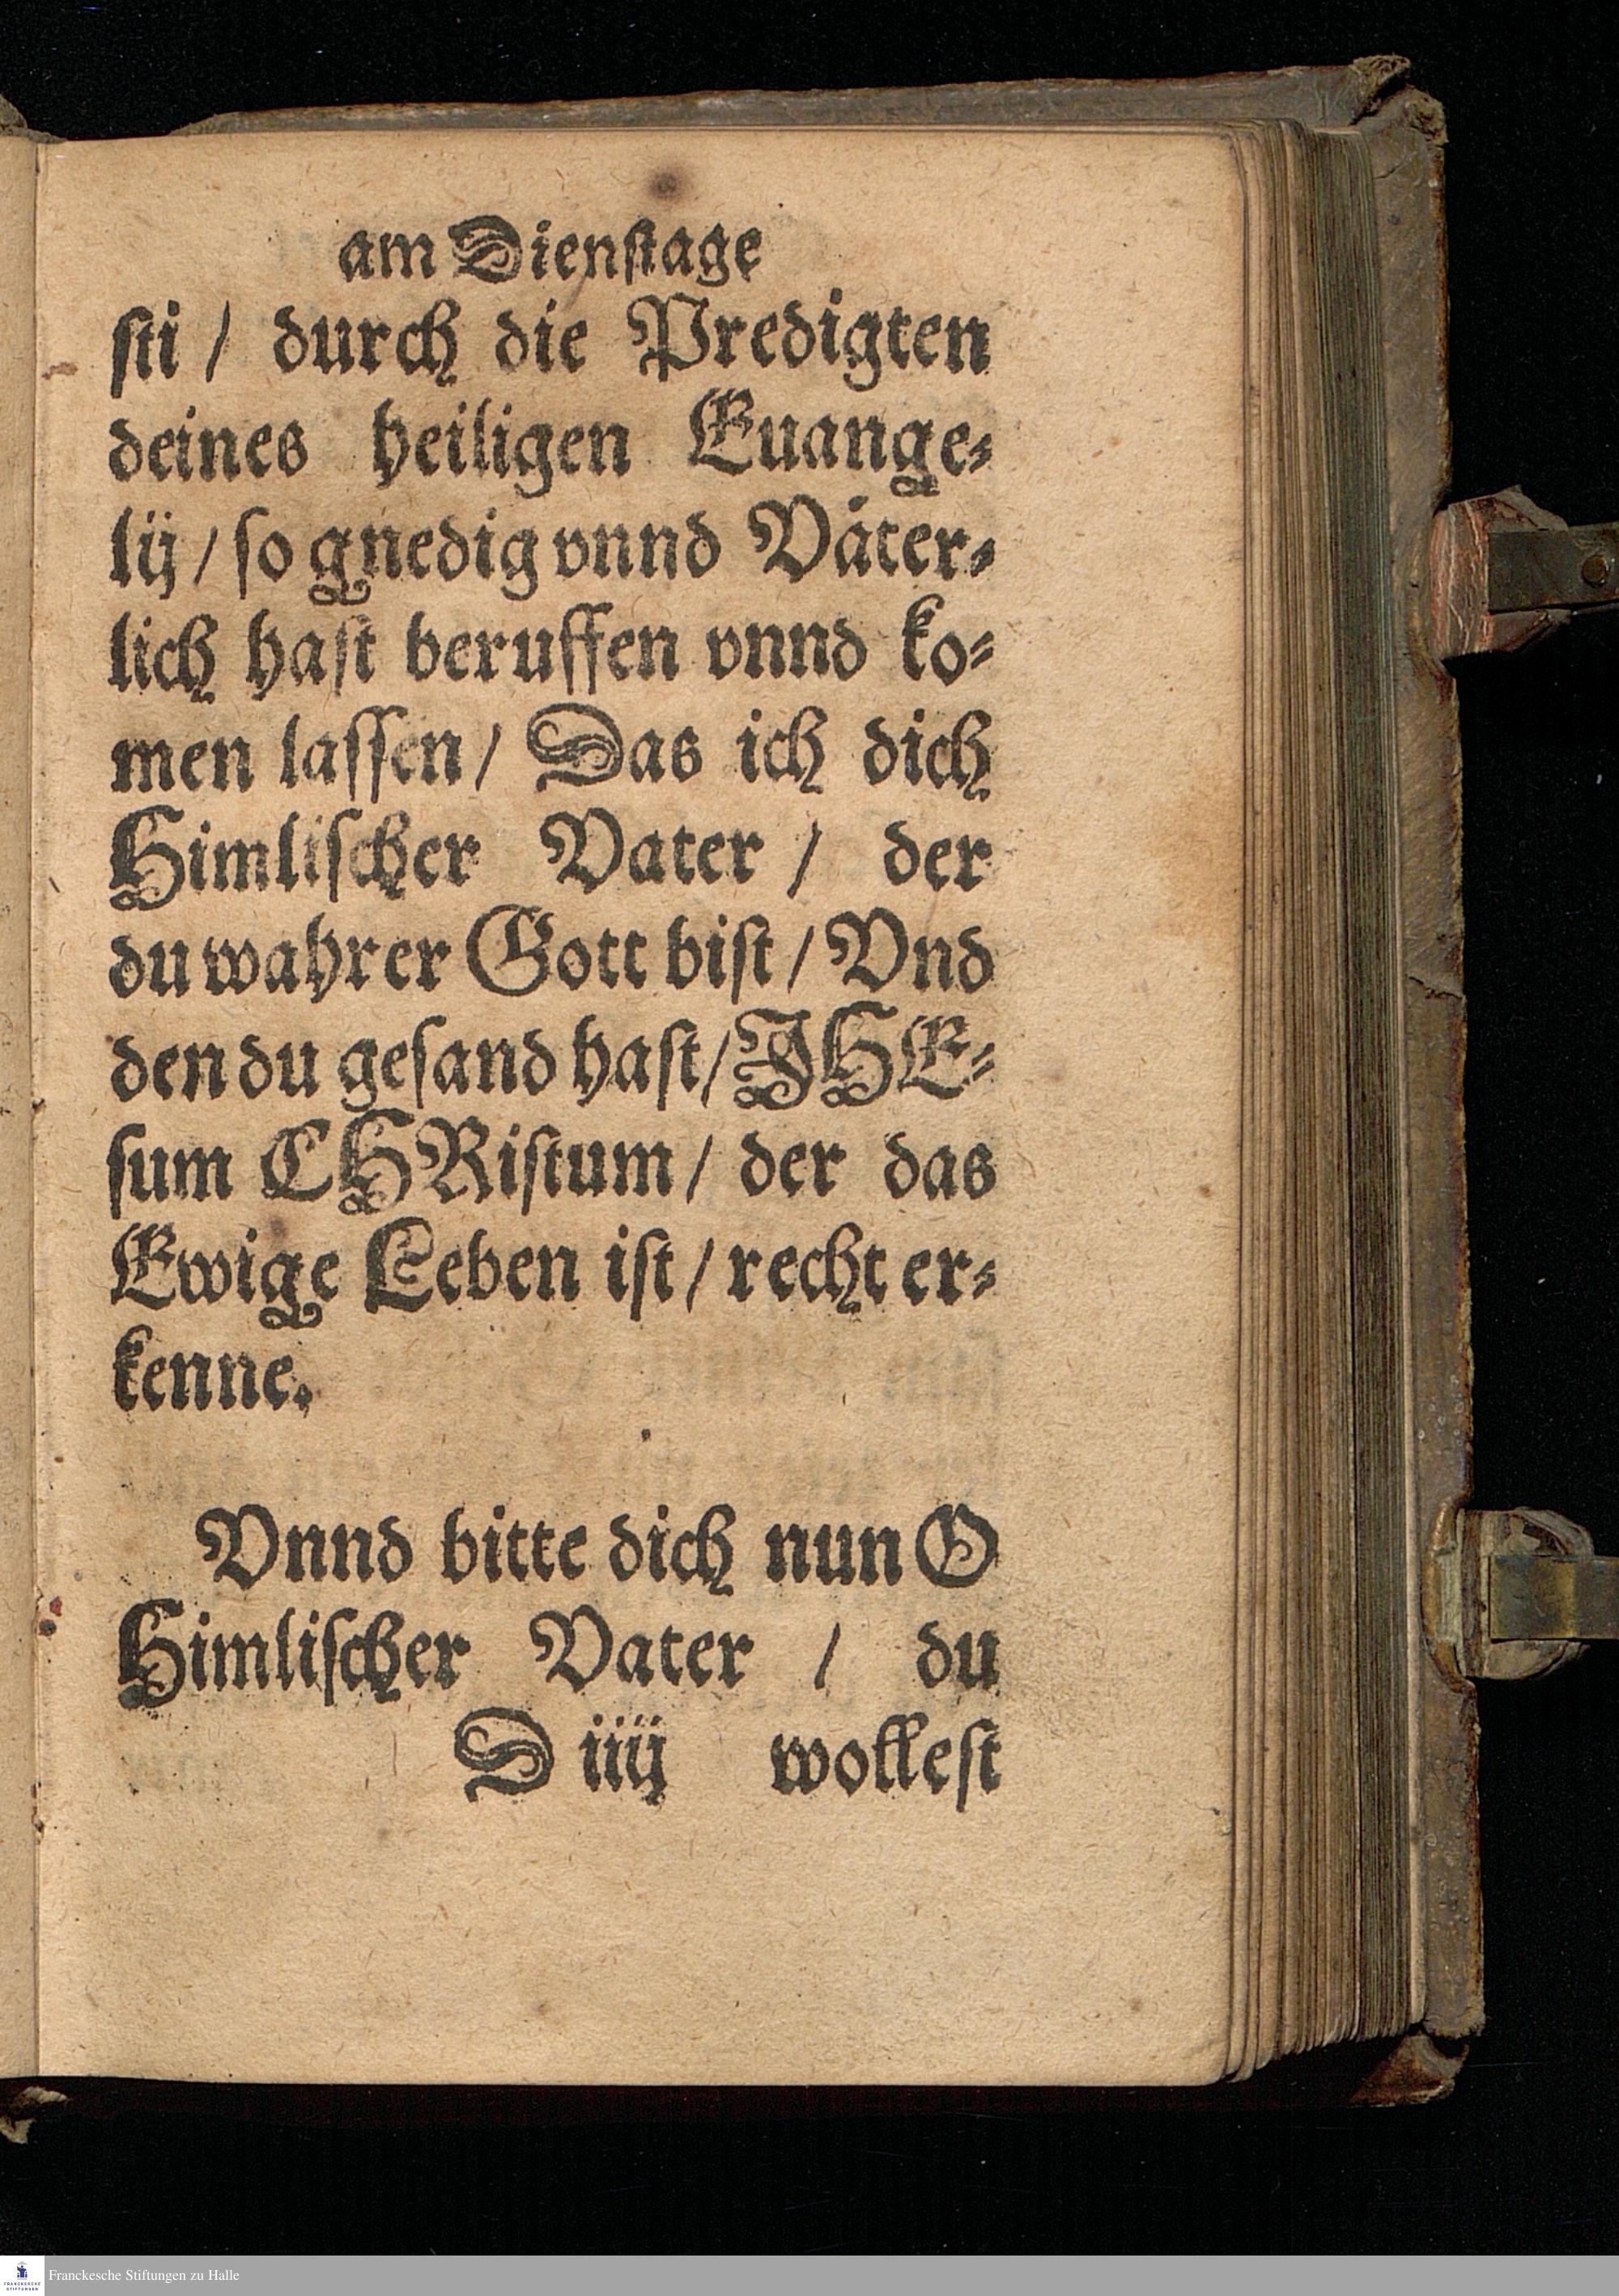 am Dienſtage
ſti / durch die Predigten
deines heiligen Euange⸗
lij / ſo gnedig vnnd Vaͤter⸗
lich haſt beruffen vnnd ko⸗
men laſſen / Das ich dich
Himliſcher Vater / der
du wahrer Gott biſt / Vnd
den du geſand haſt / JHE⸗
ſum CHRiſtum / der das
Ewige Leben iſt / recht er⸗
kenne.
Vnnd bitte dich nun O
Himliſcher Vater / du
D iiij wolleſt
FRANCKESCHE STIFTUNGEN
Franckesche Stiftungen zu Halle